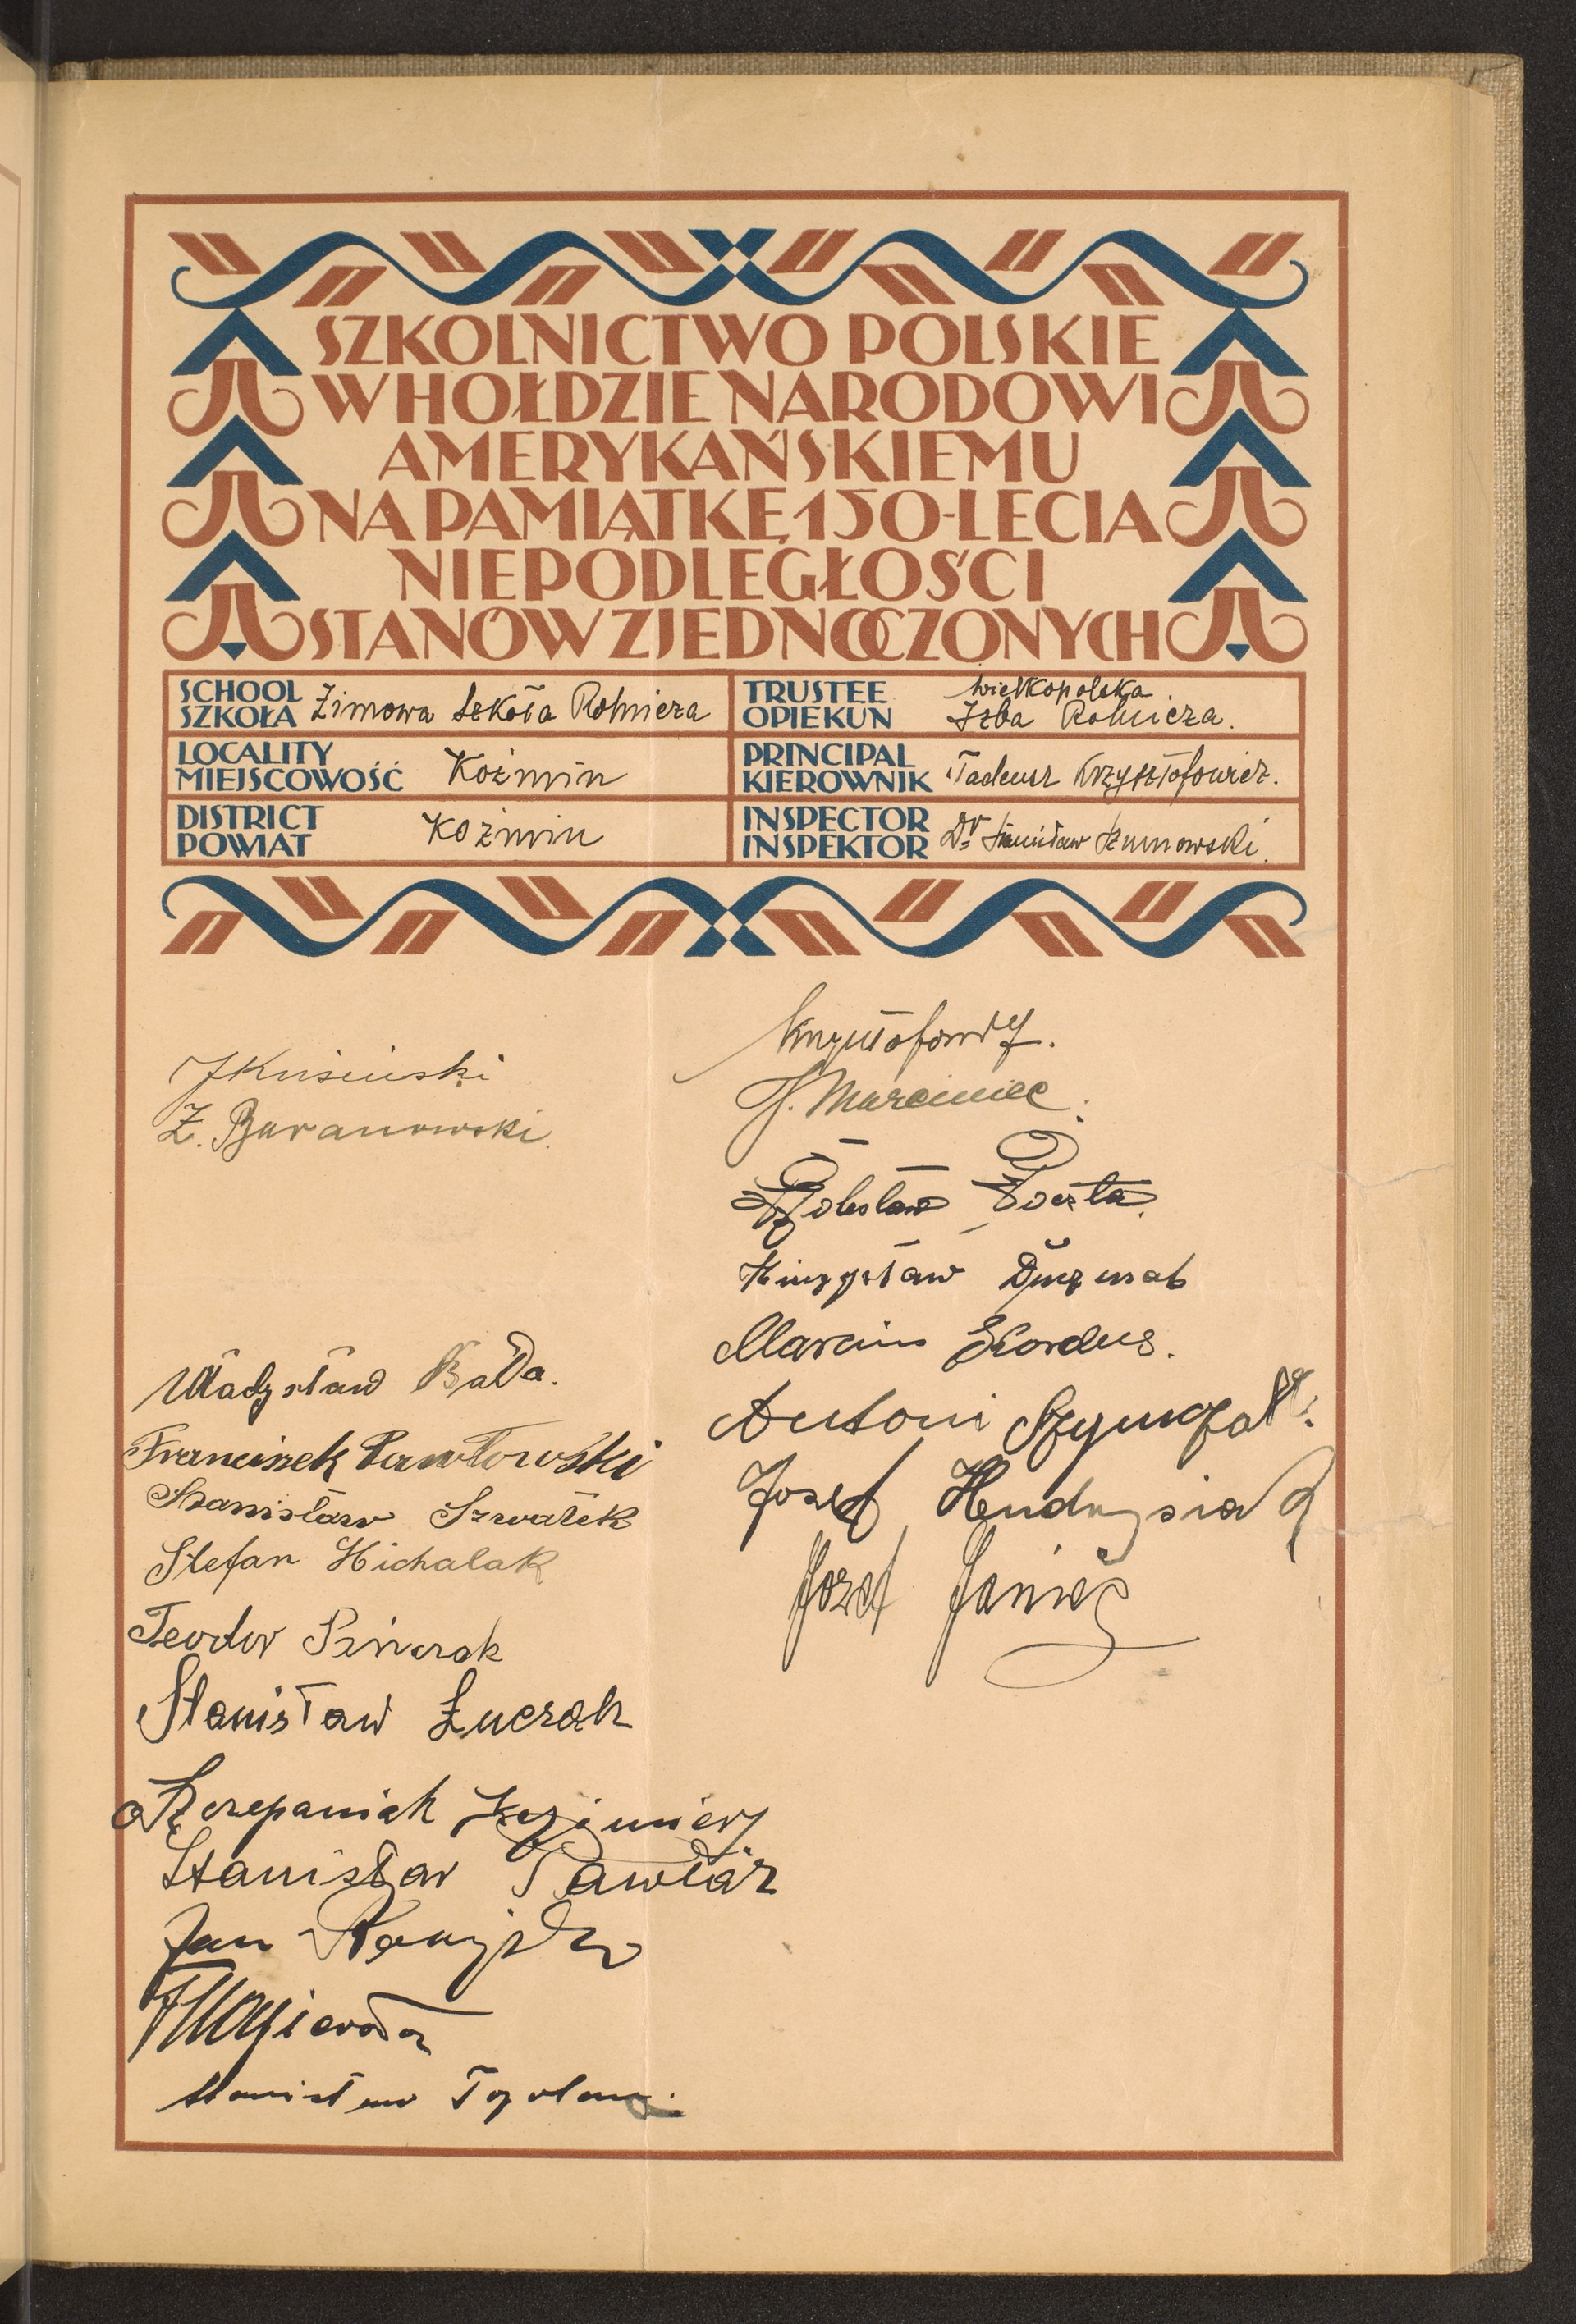 SZKOLNICTWO POLSKIE
W HOŁDZIE NARODOWI
AMERYKAŃSKIEMU
NA PAMIĄTKĘ 150-LECIA
NIEPODLEGŁOŚCI
STANÓW ZJEDNOCZONYCH
SCHOOL
SZKOŁA Zimowa Szkoła Rolnicza
TRUSTEE
OPIEKUN Wielkopolska
Izba Rolnicza.
LOCALITY
MIEJSCOWOŚĆ Koźmin
PRINCIPAL
KIEROWNIK Tadeusz Krzysztofowicz.
DISTRICT
POWIAT Koźmin
INSPECTOR
INSPEKTOR Dr Stanisław
JKusiński
Z. Baranowski.
Władysław
Franciszek Pawłowski
Stanisław
Stefan Michalak
Teodor
Stanisław Łuczak
Szczepaniak Kazimierz
Stanisław
Jan
Stanisław
J. Marciniec.
Bolesław Poczta.
Marcin Kordus.
Antoni Szymczak.
Józef Hudzysiak
Józef Janieś